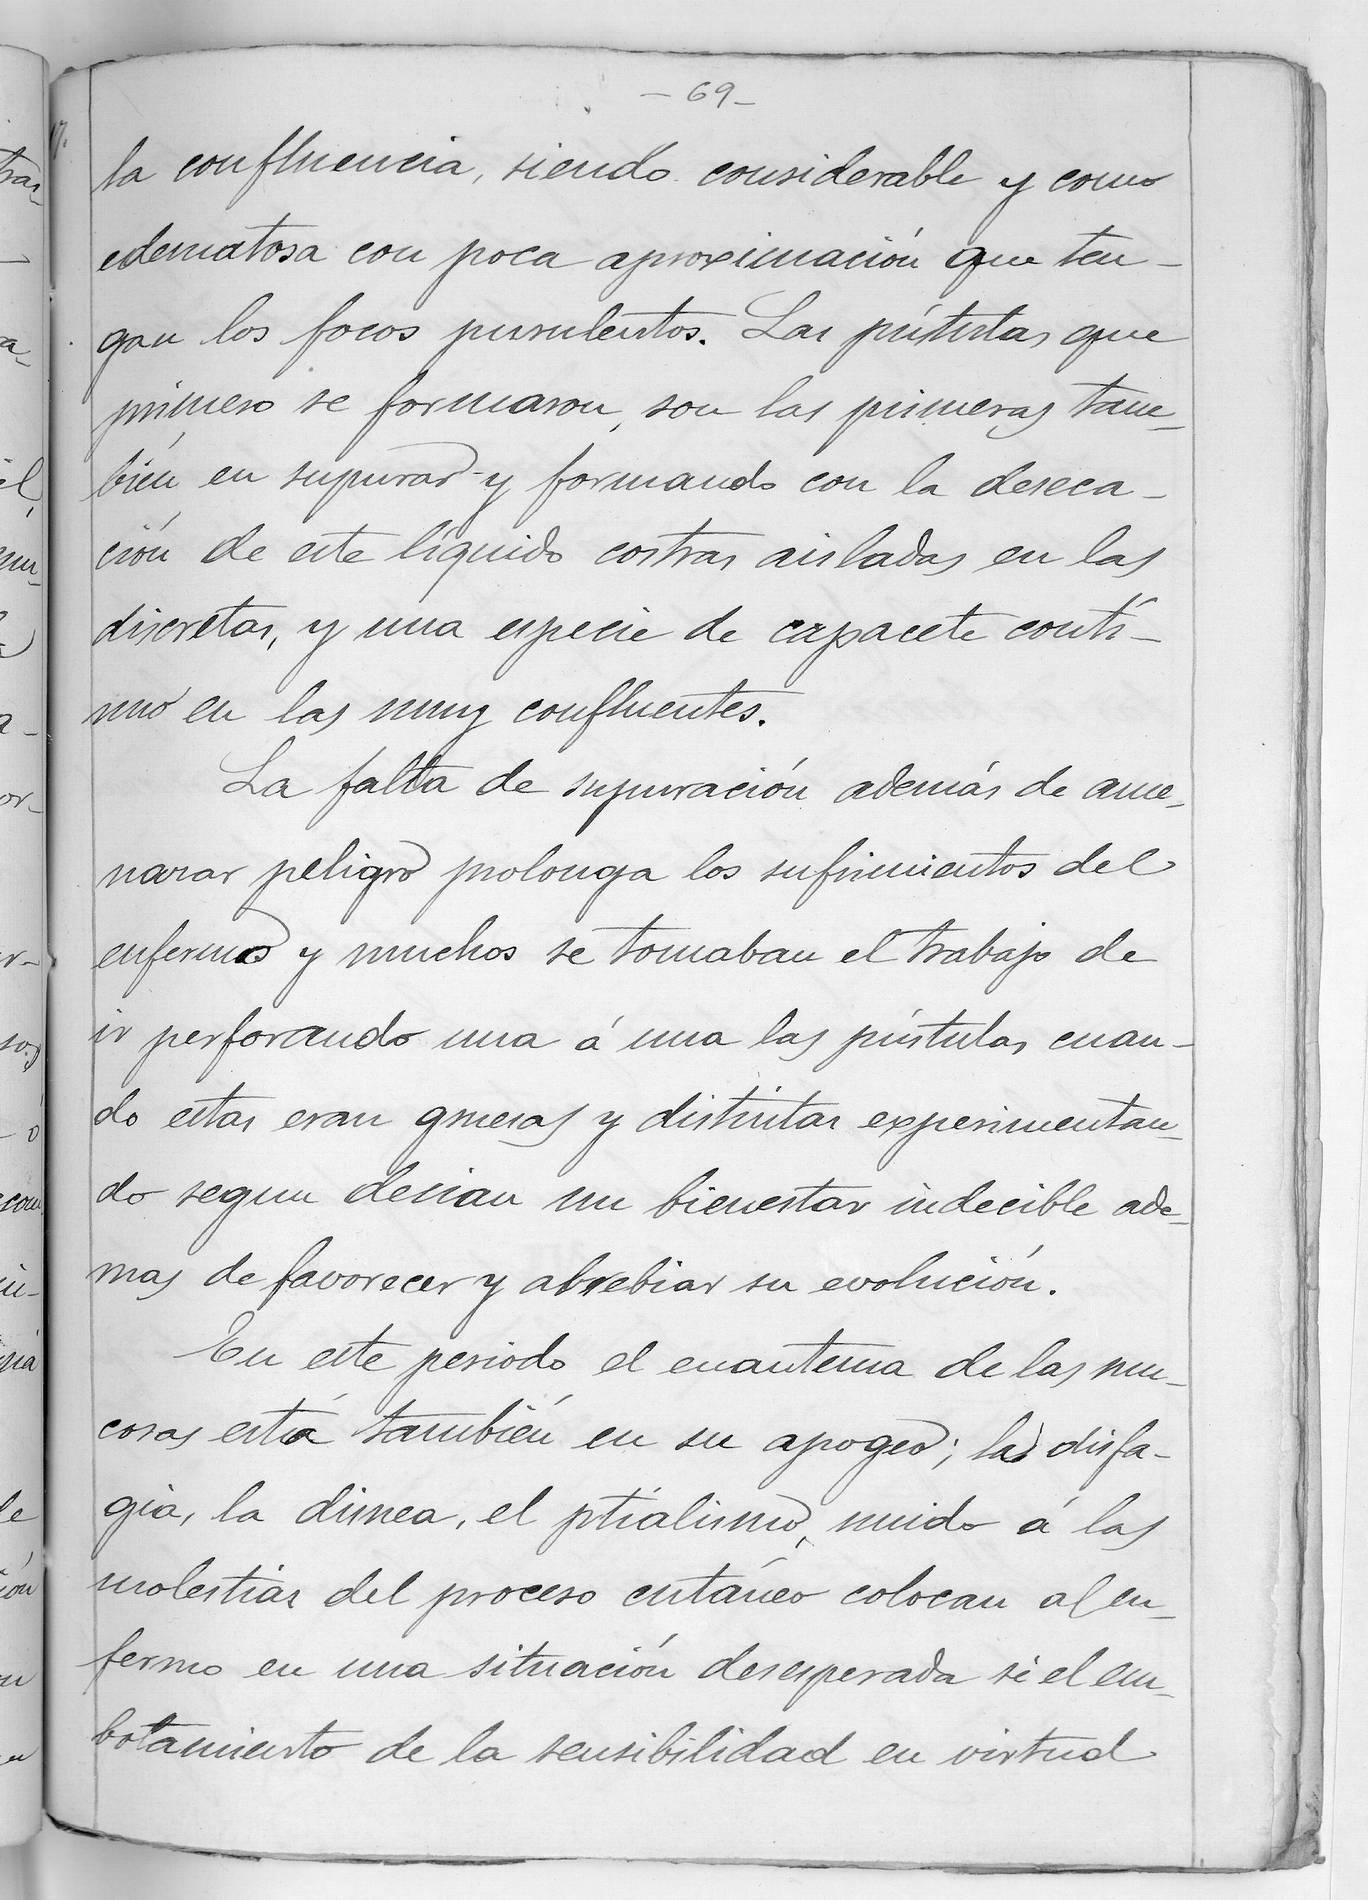 - 69 -
la confluencia, siendo considerable y como
edematosa con poca aproximación que ten-
gan los focos purulentos. Las pústulas que
primero se formaron, son las primeras tam-
bién en supurar y formando con la deseca-
ción de este líquido costras aisladas en las
discretas, y una especie de capacete contí-
nuo en las muy confluentes.
La falta de supuración además de ame-
nazar peligro prolonga los sufrimientos del
enfermo y muchos se tomaban el trabajo de
ir perforando una á una las pústulas cuan-
do estas eran gruesas y distintas experimentan-
do segun decian un bienestar indecible ade-
mas de favorecer y abrebiar su evolución.
En este periodo el enantema de las mu-
cosas está también en su apogeo; la disfa-
gia, la disnea, el ptialismo, unido á las
molestias del proceso cutáneo colocan al en-
fermo en una situación desesperada si el em-
botamiento de la sensibilidad en virtud